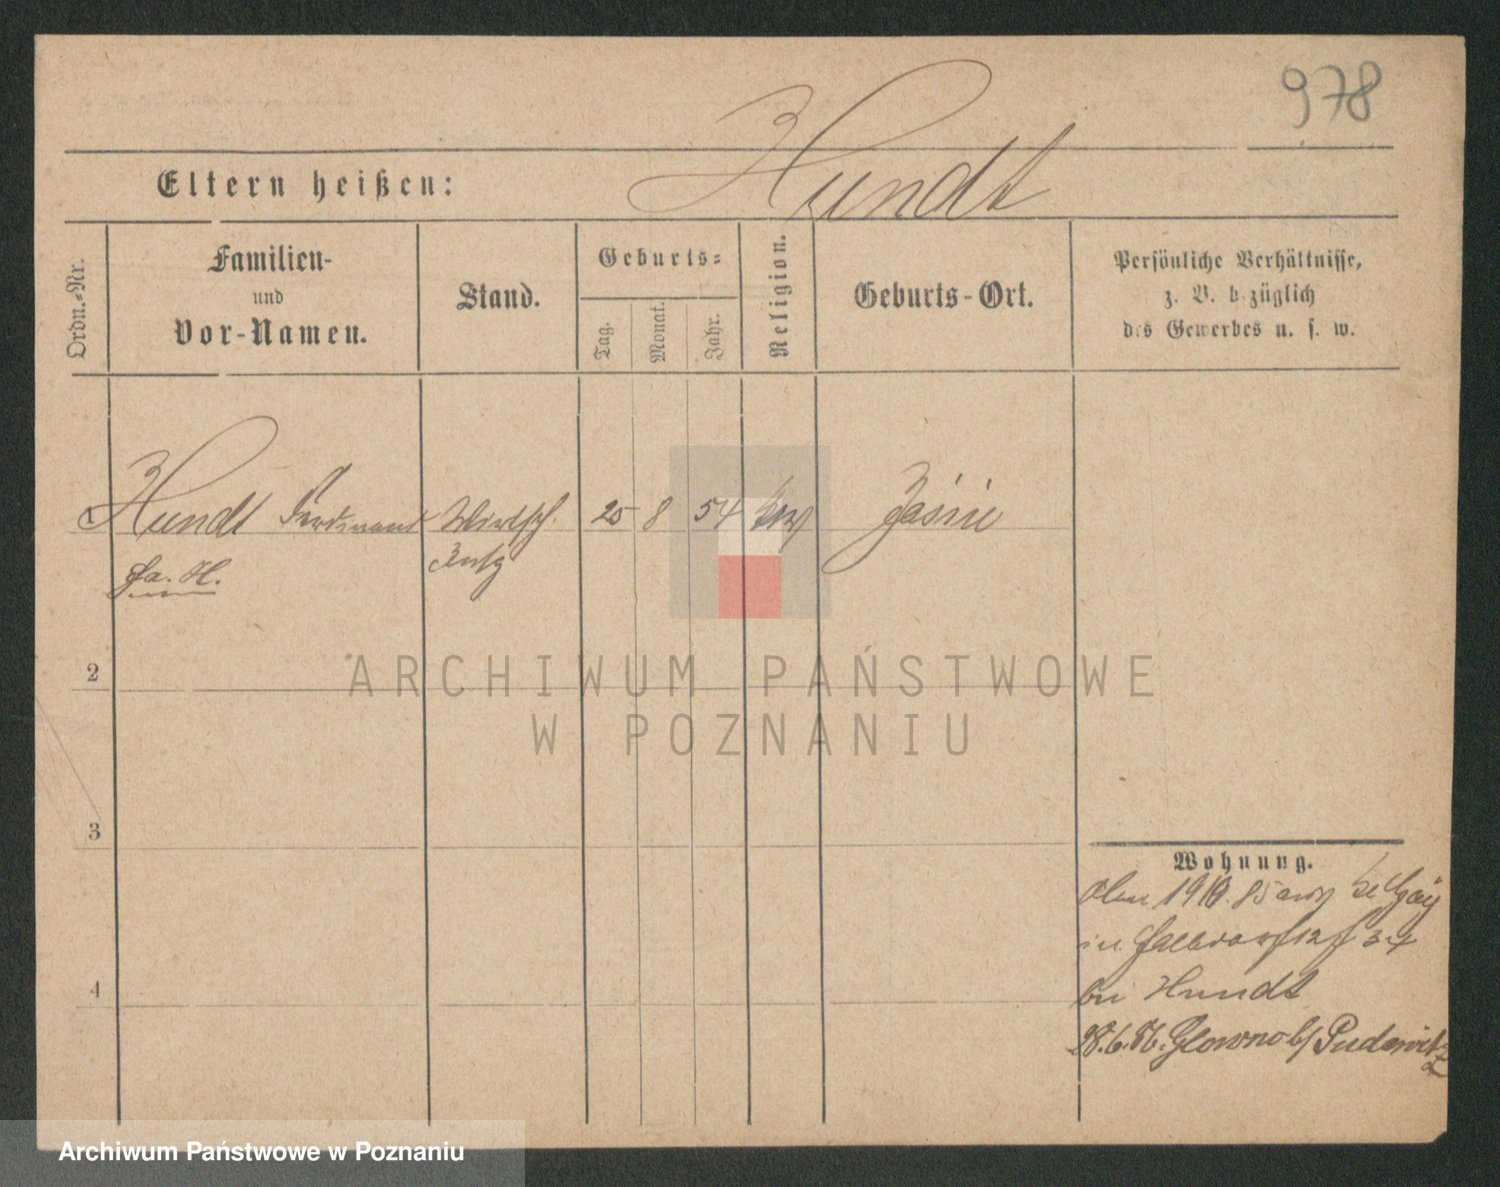 978
Eltern heißen: Hundt
Ordn.-Nr.
Familien-
und
Vor-Namen.
Stand.
Geburts-
Tag.
Monat.
Jahr.
Religion.
Geburts-Ort.
Persönliche Verhältnisse,
z. B. bezüglich
des Gewerbes u. s. w.
Hundt Ferdinand Wirtsch. 25 8 54
2
3
4
Wohnung.
85
in 34
bei Hundt
28.6.86. Glowno b/ Pudewitz
ARCHIWUM PAŃSTWOWE
W POZNANIU
Archiwum Państwowe w Poznaniu